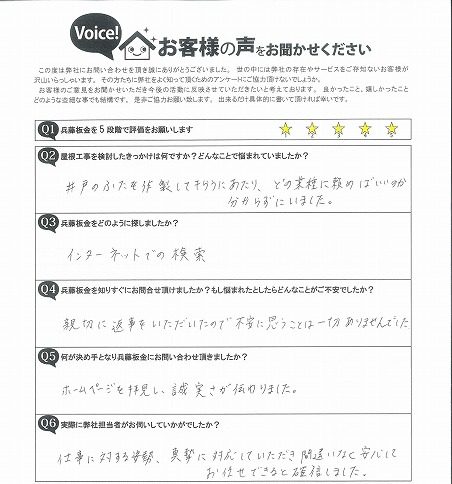 Voice!
お客様の声をお聞かせください
この度は弊社にお問い合わせを頂き誠にありがとうございました。 世の中には弊社の存在やサービスをご存知ないお客様が
沢山いらっしゃいます。 その方たちに弊社をよく知って頂くためのアンケートにご協力頂けないでしょうか。
お客様のご意見をお聞かせいただき今後の活動に反映させていただきたいと考えております。 良かったこと、嬉しかったこと
どのような些細な事でも結構です。 是非ご協力お願い致します。 出来るだけ具体的に書いて頂ければ幸いです。
Q1 兵藤板金を5段階で評価をお願いします
1 2 3 4 5
Q2 屋根工事を検討したきっかけは何ですか?どんなことで悩まれていましたか?
井戸のふたを作製してもらうにあたり、どの業種に頼めばいいのか
分からずにいました。
Q3 兵藤板金をどのように探しましたか?
インターネットでの検索
Q4 兵藤板金を知りすぐにお問合せ頂けましたか?もし悩まれたとしたらどんなことがご不安でしたか?
親切に返事をいただいたので不安に思うことは一切ありませんでした
Q5 何が決め手となり兵藤板金にお問い合わせ頂きましたか?
ホームページを拝見し、誠実さが伝わりました。
Q6 実際に弊社担当者がお伺いしていかがでしたか?
仕事に対する姿勢、真摯に対応していただき間違いなく安心して
お任せできると確信しました。